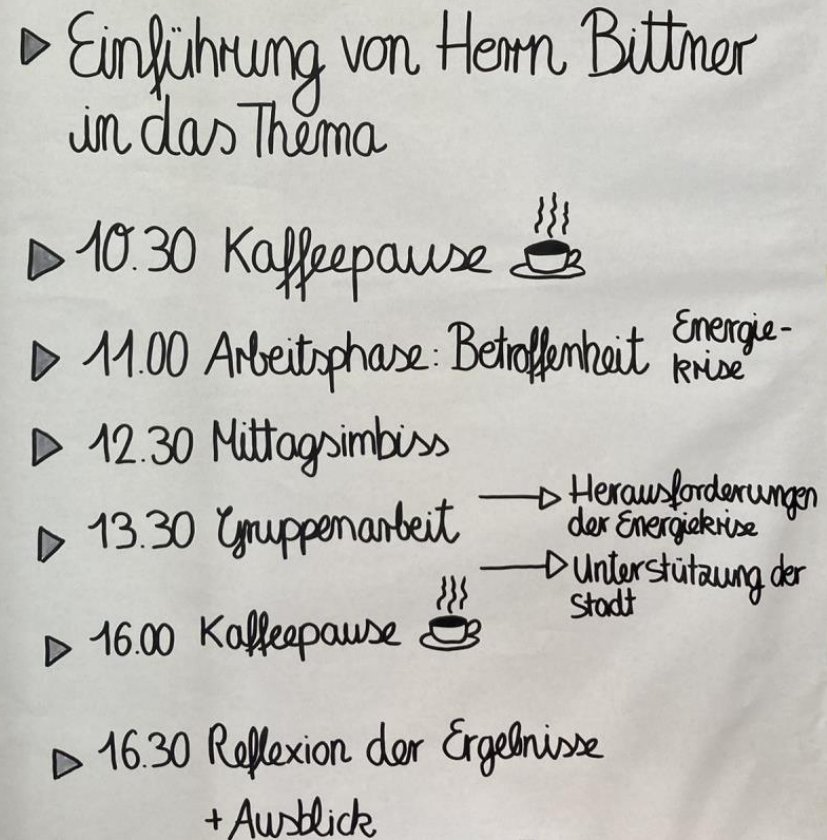 Einführung von Herrn Bittner
in das Thema
10.30 Kaffeepause
11.00 Arbeitsphase: Betroffenheit Energie-
krise
12.30 Mittagsimbiss
13.30 Gruppenarbeit
Herausforderungen
der Energiekrise
Unterstützung der
Stadt
16.00 Kaffeepause
16.30 Reflexion der Ergebnisse
+ Ausblick